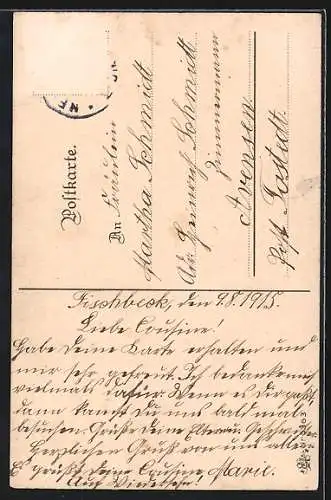 Postkarte.
An Fräulein
Martha Schmidt
Adr. Heinrich Schmidt
Zimmermann
Avensen
Post Tostedt.
Fischbeck, den 9.8.1915.
Liebe Cousine!
Habe Deine Karte erhalten und
mir sehr gefreut. Ich bedanke mich
vielmals dafür. Wenn es Dir paßt,
dann kannst Du uns bald mal
besuchen. Grüße Deine Eltern u. Geschwister.
Herzlichen Gruß von uns allen
Es grüßt Deine Cousine Marie.
Auf Wiedersehn!